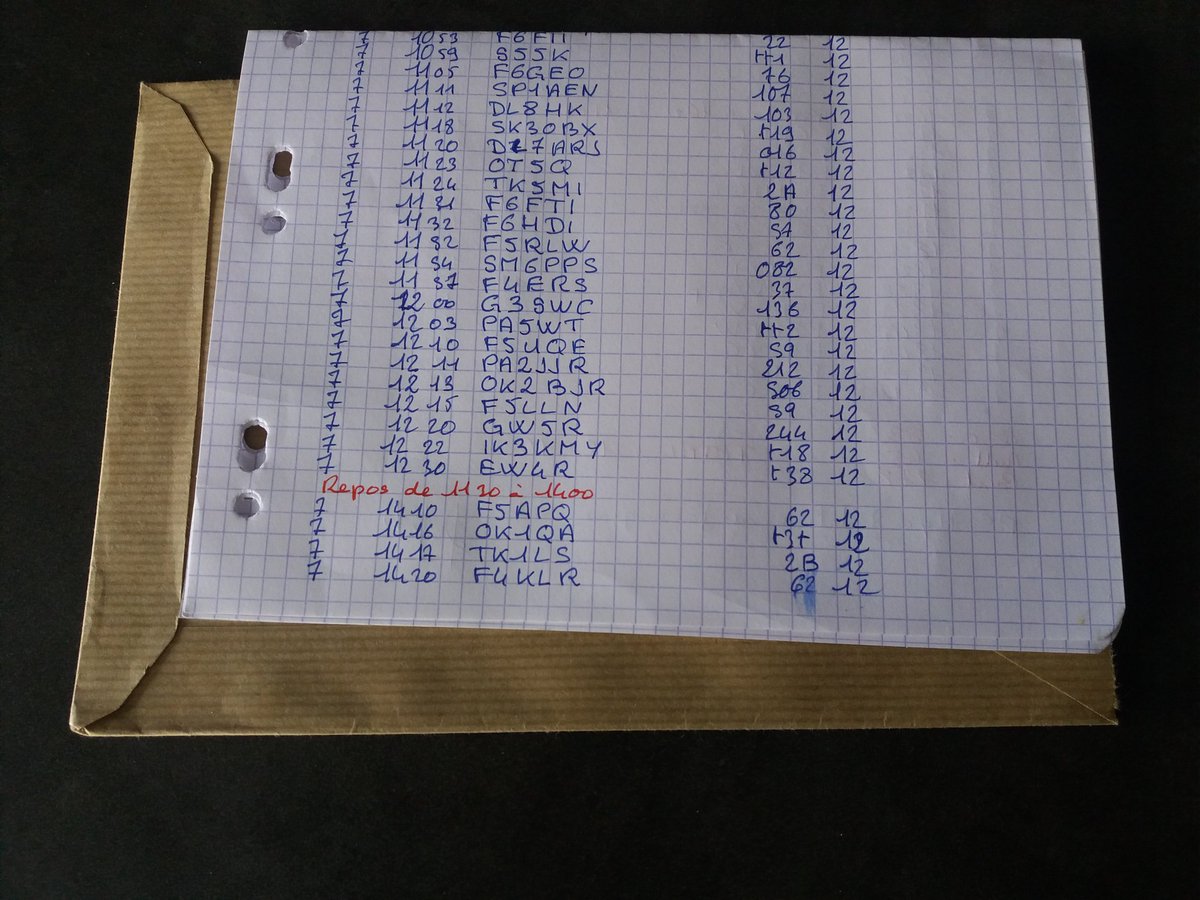 7 1053 F6FII 22 12
7 1059 S55K ++1 12
7 1105 F6GEO 76 12
7 1111 SP1AEN 107 12
7 1112 DL8HK 103 12
7 1118 SK30BX +19 12
7 1120 DL7ARJ 016 12
7 1123 OT5Q +12 12
7 1124 TK5MI 2A 12
7 1131 F6FTI 80 12
7 1132 F6HDI 57 12
7 1132 F5RLW 62 12
7 1134 SM6PPS 082 12
7 1137 F4ERS 37 12
7 1200 G39WC 136 12
7 1203 PA5WT ++2 12
7 1210 F5UQE 59 12
7 1211 PA2JJR 212 12
7 1213 OK2BJR 506 12
7 1215 F5LLN 59 12
7 1220 GW5R 244 12
7 1222 IK3KMY +18 12
7 1230 EW4R +38 12
Repos de 1130 à 1400
7 1410 F5APQ 62 12
7 1416 OK1QA +3+ 12
7 1417 TK1LS 2B 12
7 1420 F4KLR 62 12